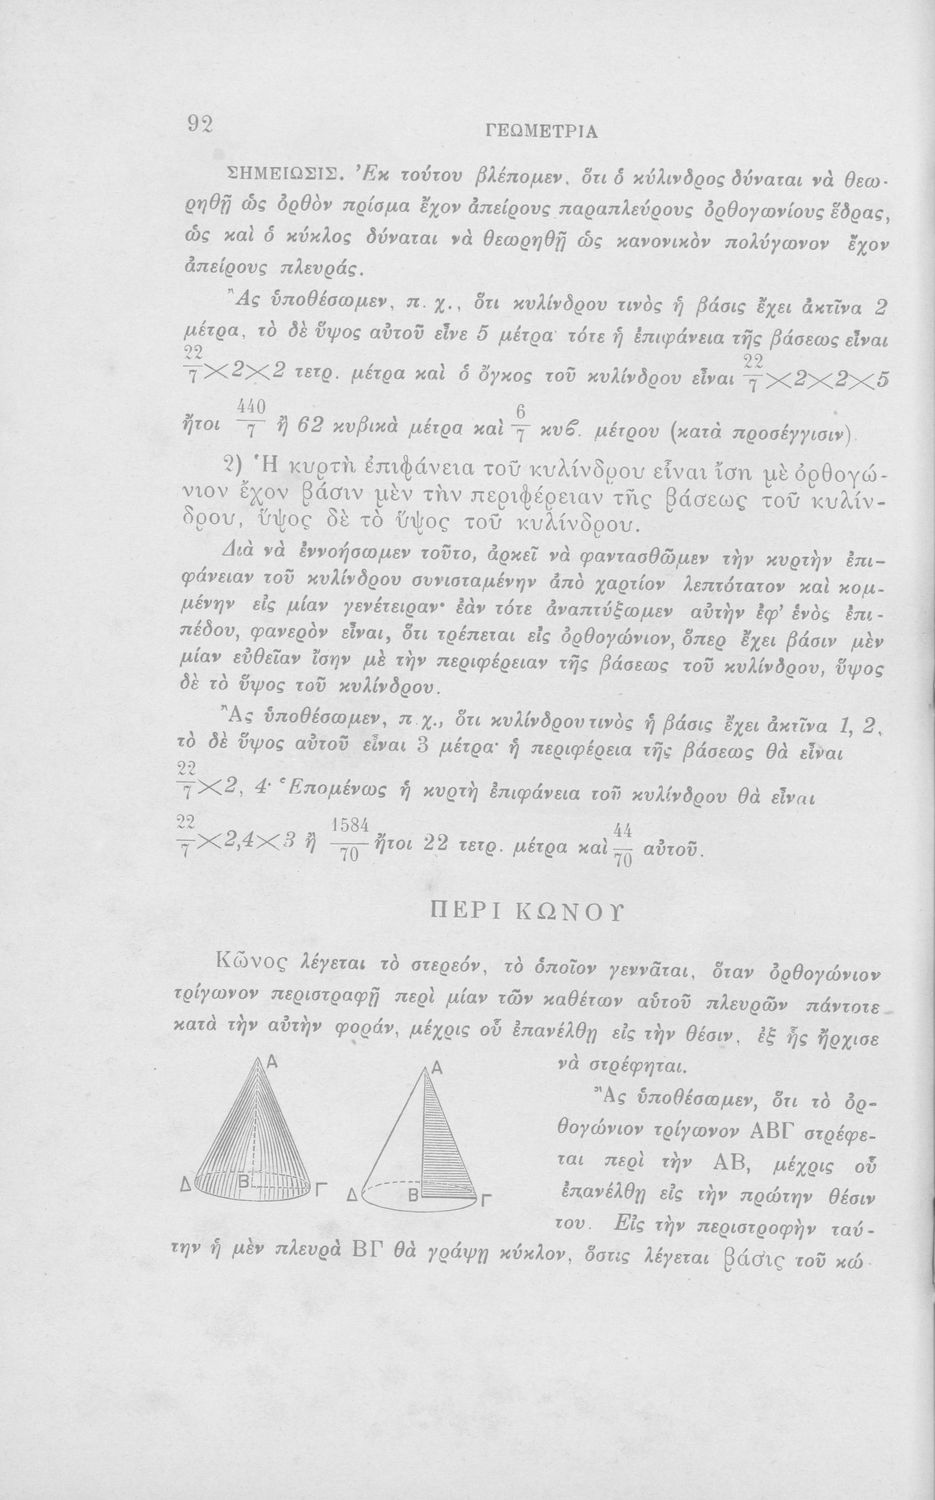 92
ΓΕΩΜΕΤΡΙΑ
ΣΗΜΕΙΩΣΙΣ. Ἐκ τούτου βλέπομεν, ὅτι ὁ κύλινδρος δύναται νὰ θεω-
ρηθῇ ὡς ὀρθὸν πρίσμα ἔχον ἀπείρους παραπλεύρους ὀρθογωνίους ἕδρας,
ὡς καὶ ὁ κύκλος δύναται νὰ θεωρηθῇ ὡς κανονικὸν πολύγωνον ἔχον
ἀπείρους πλευράς.
Ἂς ὑποθέσωμεν, π. χ., ὅτι κυλίνδρου τινὸς ἡ βάσις ἔχει ἀκτῖνα 2
μέτρα, τὸ δὲ ὕψος αὐτοῦ εἶνε 5 μέτρα· τότε ἡ ἐπιφάνεια τῆς βάσεως εἶναι
22/7×2×2 τετρ. μέτρα καὶ ὁ ὄγκος τοῦ κυλίνδρου εἶναι 22/7×2×2×5
ἤτοι 440/7 ἢ 62 κυβικὰ μέτρα καὶ 6/7 κυβ. μέτρου (κατὰ προσέγγισιν).
2) Ἡ κυρτὴ ἐπιφάνεια τοῦ κυλίνδρου εἶναι ἴση μὲ ὀρθογώ-
νιον ἔχον βάσιν μὲν τὴν περιφέρειαν τῆς βάσεως τοῦ κυλίν-
δρου, ὕψος δὲ τὸ ὕψος τοῦ κυλίνδρου.
Διὰ νὰ ἐννοήσωμεν τοῦτο, ἀρκεῖ νὰ φαντασθῶμεν τὴν κυρτὴν ἐπι-
φάνειαν τοῦ κυλίνδρου συνισταμένην ἀπὸ χαρτίον λεπτότατον καὶ κομ-
μένην εἰς μίαν γενέτειραν· ἐὰν τότε ἀναπτύξωμεν αὐτὴν ἐφ' ἑνὸς ἐπι-
πέδου, φανερὸν εἶναι, ὅτι τρέπεται εἰς ὀρθογώνιον, ὅπερ ἔχει βάσιν μὲν
μίαν εὐθεῖαν ἴσην μὲ τὴν περιφέρειαν τῆς βάσεως τοῦ κυλίνδρου, ὕψος
δὲ τὸ ὕψος τοῦ κυλίνδρου.
Ἂς ὑποθέσωμεν, π.χ., ὅτι κυλίνδρου τινὸς ἡ βάσις ἔχει ἀκτῖνα 1, 2,
τὸ δὲ ὕψος αὐτοῦ εἶναι 3 μέτρα· ἡ περιφέρεια τῆς βάσεως θὰ εἶναι
22/7×2, 4· Ἑπομένως ἡ κυρτὴ ἐπιφάνεια τοῦ κυλίνδρου θὰ εἶναι
22/7×2,4×3 ἢ 1584/70 ἤτοι 22 τετρ. μέτρα καὶ 44/70 αὐτοῦ.
ΠΕΡΙ ΚΩΝΟΥ
Κῶνος λέγεται τὸ στερεόν, τὸ ὁποῖον γεννᾶται, ὅταν ὀρθογώνιον
τρίγωνον περιστραφῇ περὶ μίαν τῶν καθέτων αὑτοῦ πλευρῶν πάντοτε
κατὰ τὴν αὐτὴν φοράν, μέχρις οὗ ἐπανέλθῃ εἰς τὴν θέσιν, ἐξ ἧς ἤρχισε
νὰ στρέφηται.
Ἂς ὑποθέσωμεν, ὅτι τὸ ὀρ-
θογώνιον τρίγωνον ΑΒΓ στρέφε-
ται περὶ τὴν ΑΒ, μέχρις οὗ
ἐπανέλθῃ εἰς τὴν πρώτην θέσιν
του. Εἰς τὴν περιστροφὴν ταύ-
Α
Δ
Β
Γ
Α
Δ
Β
Γ
την ἡ μὲν πλευρὰ ΒΓ θὰ γράψῃ κύκλον, ὅστις λέγεται βάσις τοῦ κώ-